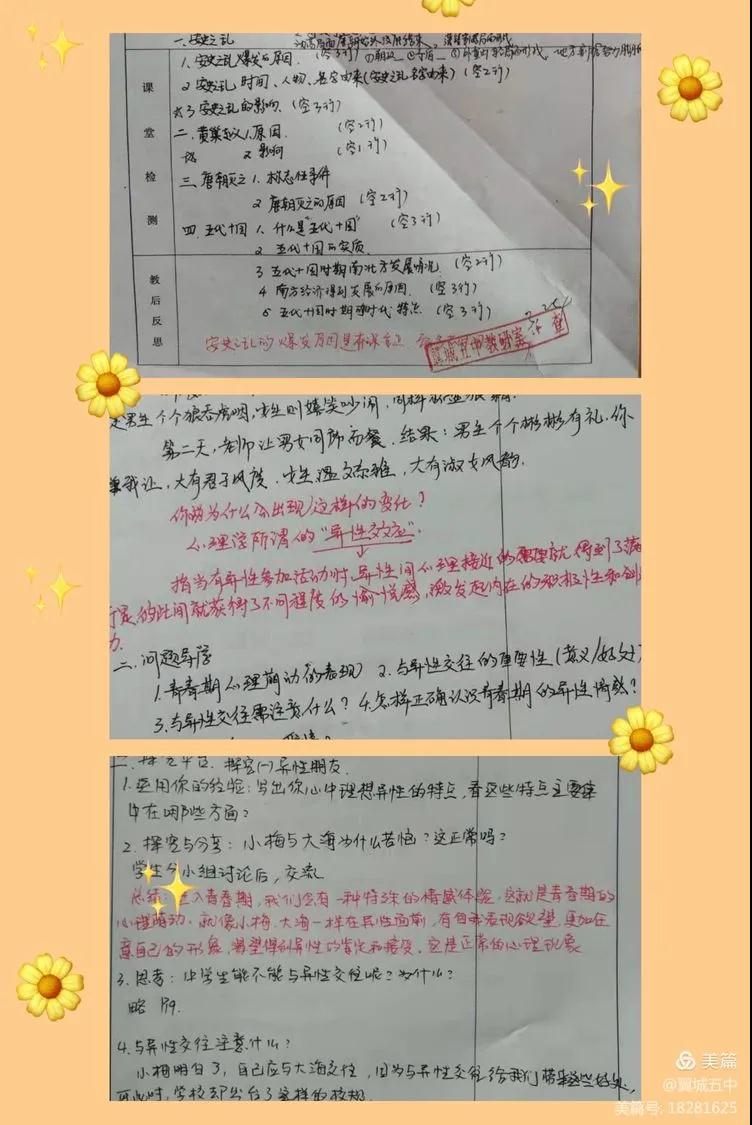 一、安史之乱
1、安史之乱爆发的原因. (空3行)
2 安史之乱 时间、人物、名字由来(安史之乱名字由来) (空2行)
3 安史之乱的影响. (空3行)
二、黄巢起义 1、原因. (空2行)
2 影响 (空1行)
三、唐朝灭亡 1、标志性事件
2 唐朝灭亡的原因 (空2行)
四 五代十国 1、什么是"五代十国" (空3行)
2 五代十国的实质.
课堂检测
3 五代十国时期南北方发展情况. (空2行)
4 南方经济得到发展的原因. (空3行)
5 五代十国时期的时代特点 (空3行)
教后反思
安史之乱的爆发原因是本课重点
翼城五中教研室 查
是男生个个狼吞虎咽,女生则嬉笑吵闹,
第二天,老师让男女同师而餐. 结果:男生个个彬彬有礼.你
我让,大有君子风度.女生温文尔雅,大有淑女风韵.
你认为什么会出现这样的变化?
心理学所谓的"异性效应".
指当有异性参加活动时,异性间心理接近的需要就得到了满
于是彼此间就获得了不同程度的愉悦感,激发起内在的积极性和创
力.
二、问题导学
1.青春期心理萌动(的表现) 2.与异性交往的重要性(意义/好处)
3.与异性交往需注意什么? 4.怎样正确认识青春期的异性情感?
二、探究平台. 探究(一)异性朋友.
1.运用你的经验:写出你心中理想异性的特点,看这些特点主要集
中在哪些方面?
2.探究与分享:小梅与大海为什么苦恼?这正常吗?
学生分小组讨论后,交流
总结:进入青春期,我们会有一种特殊的情感体验,这就是青春期的
心理萌动.就像小梅、大海一样在异性面前,有自我表现欲望,更加在
意自己的形象,渴望得到异性的肯定和接受.这是正常的心理现象
3.思考:中学生能不能与异性交往呢?为什么?
略 P9.
4.与异性交往注意什么?
小梅明白了,自己应与大海交往,因为与异性交往给我们带来这些好处,
可此时,学校却出台了这样的校规.
美篇
@翼城五中
美篇号: 18281625